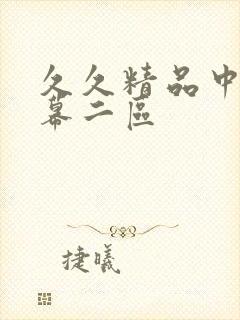 久久精品中
幕二區
捷曦